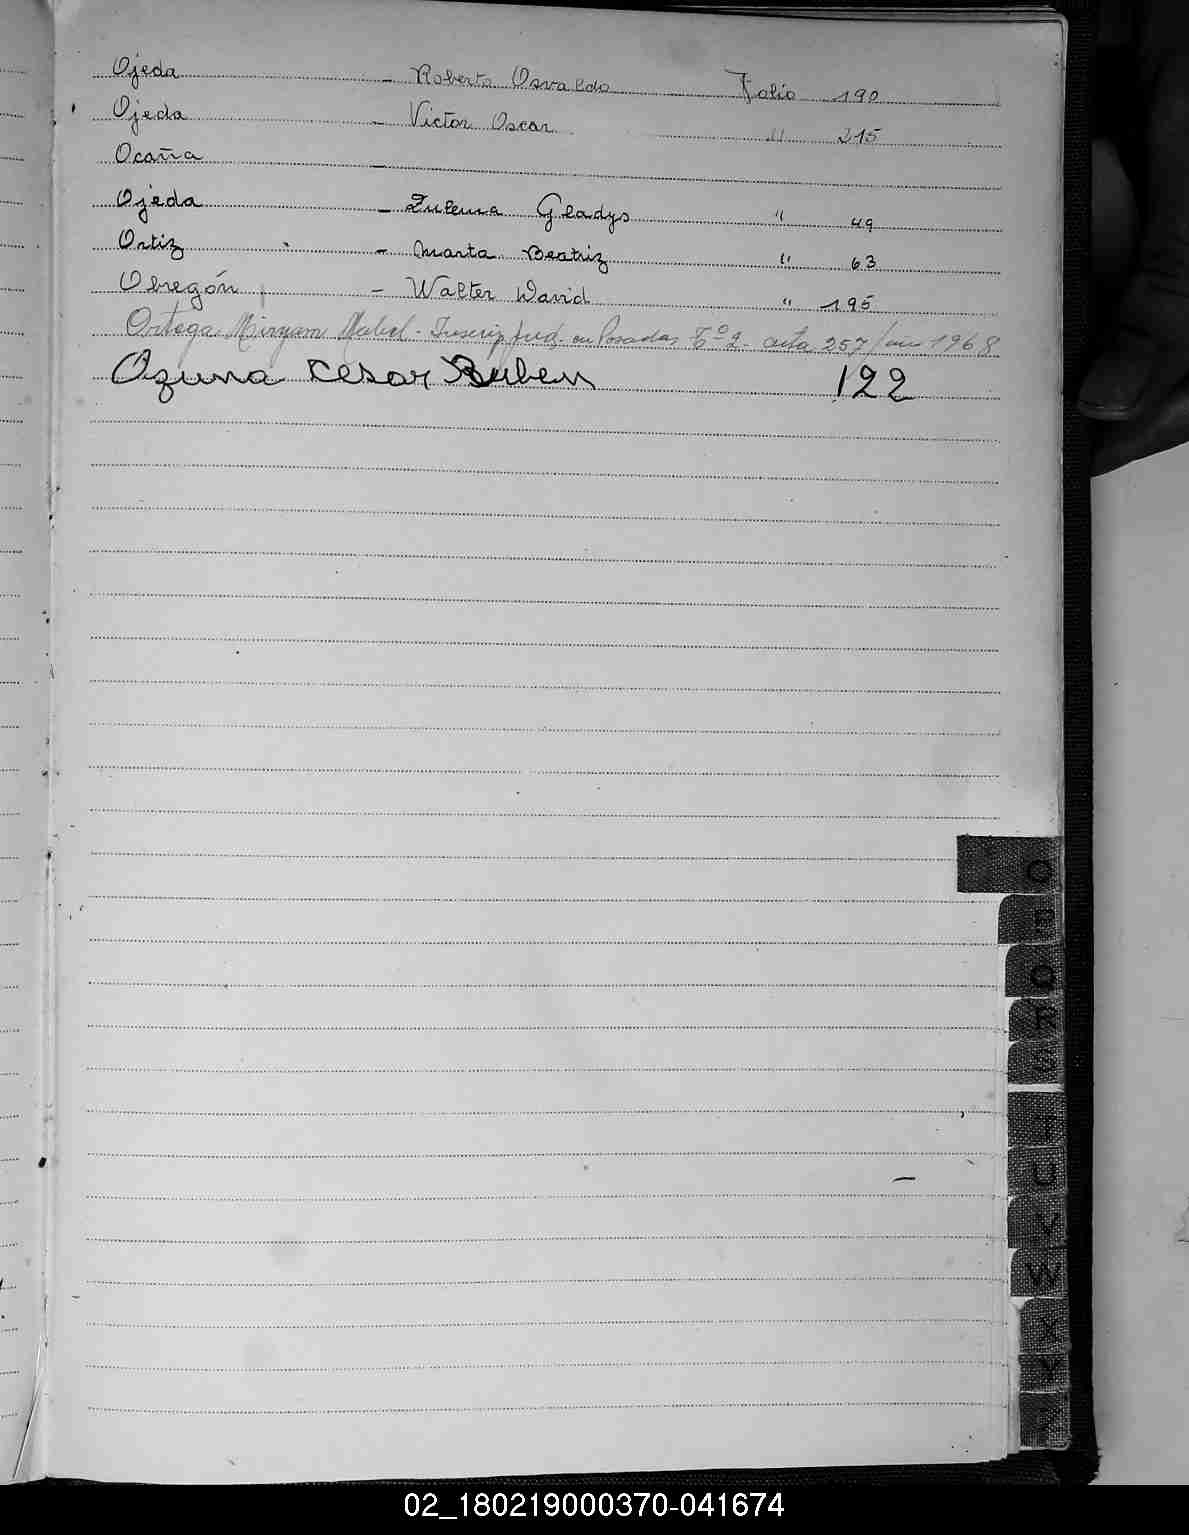 Ojeda - Roberto Osvaldo Folio 190
Ojeda - Victor Oscar " 215
Ocaña -
Ojeda - Zulema Gladys " 49
Ortiz - Marta Beatriz " 63
Obregón - Walter David " 195
Ortega Miryam Mabel - Inscrip. Jud. en Posadas Tº 2 - acta 257/ 1968
Ozuna Cesar Ruben 122
O
P
Q
R
S
T
U
V
W
X
Y
Z
02_180219000370-041674